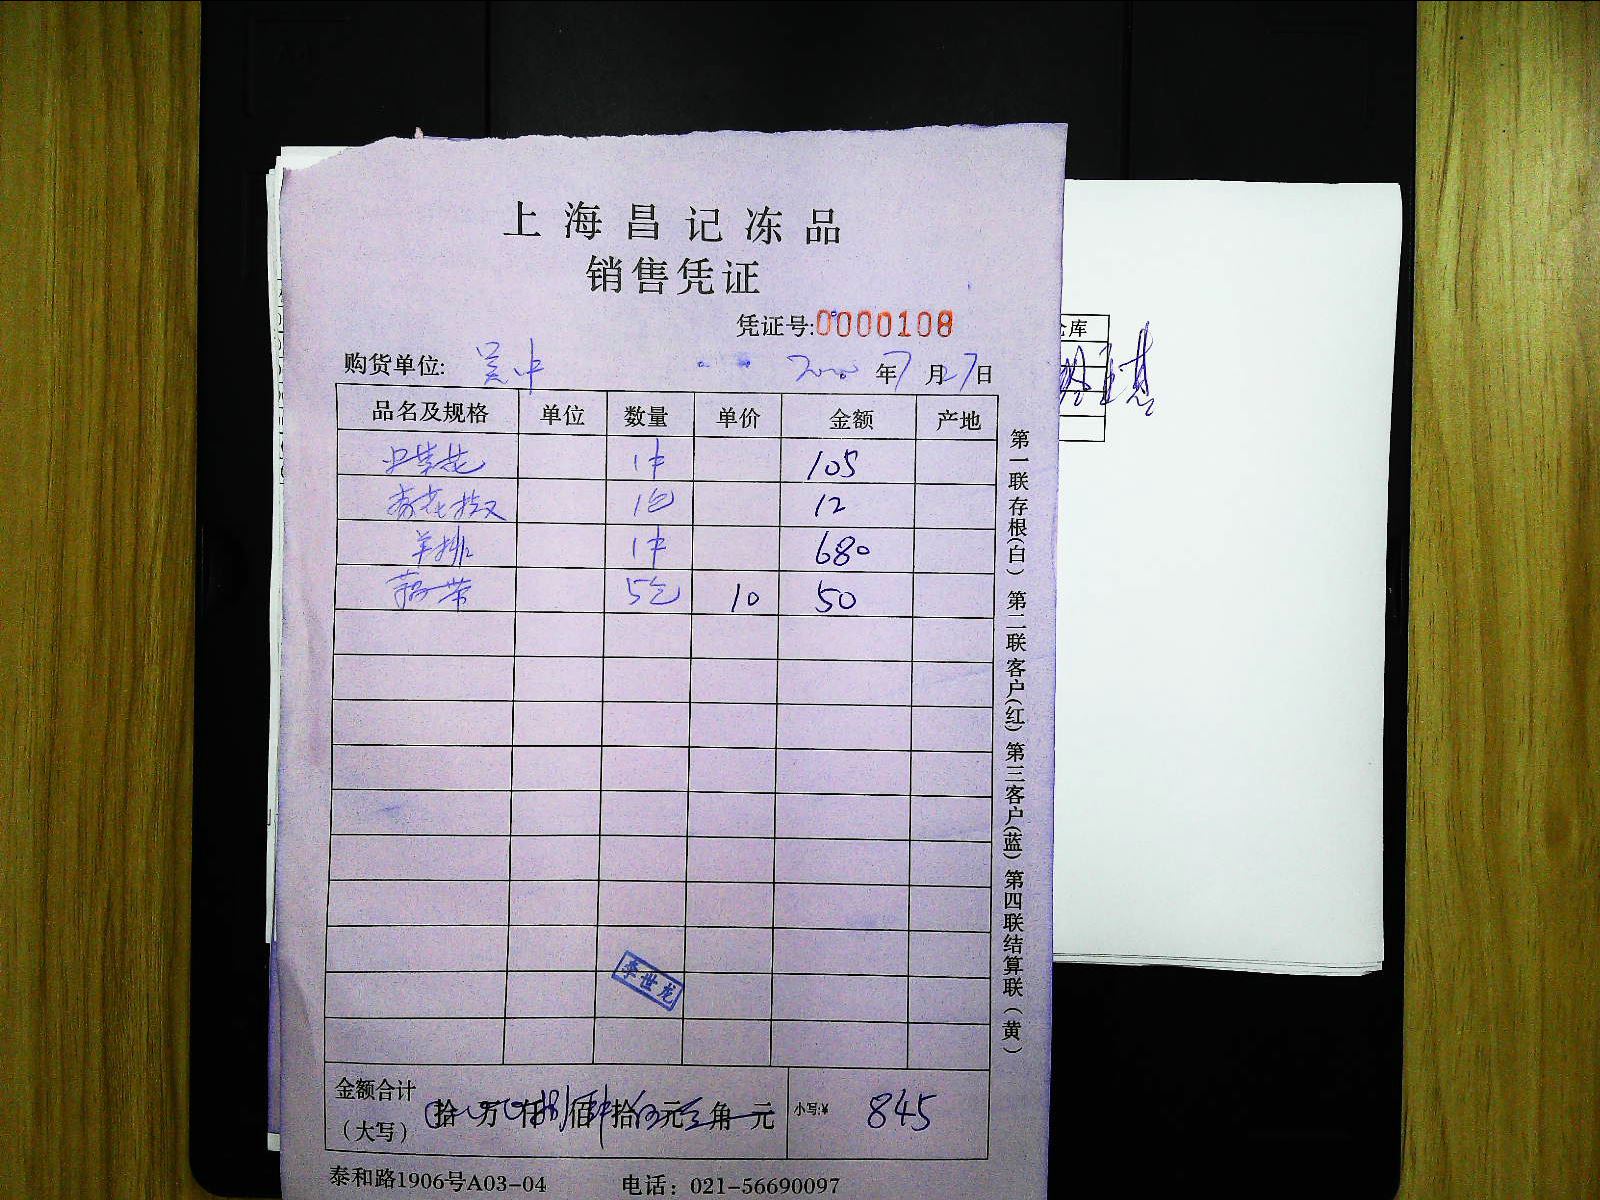 上海昌记冻品
销售凭证
凭证号:0000108
购货单位: 吴中 2020年7月27日
品名及规格 单位 数量 单价 金额 产地
1件 105
1包 12
羊排 1件 680
5包 10 50
李世龙
金额合计（大写） 拾 万 仟捌佰肆拾伍元 角 元 小写:¥ 845
泰和路1906号A03-04 电话：021-56690097
第一联存根(白) 第二联客户(红) 第三客户(蓝) 第四联结算联(黄)
仓库